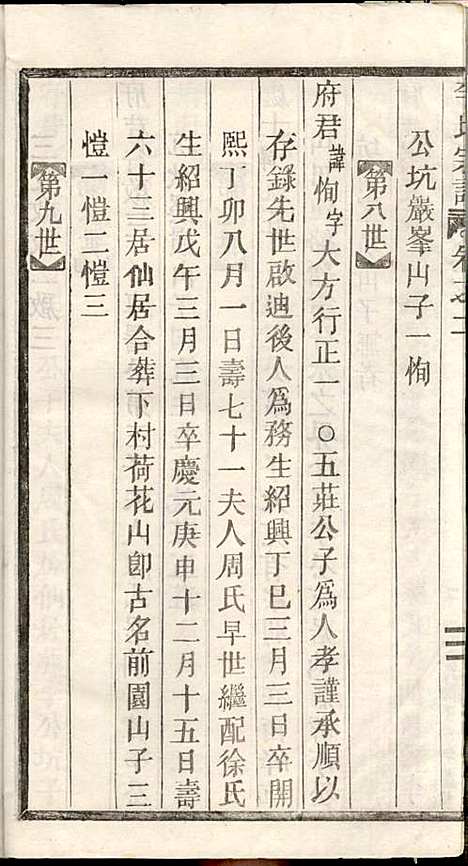 公坑嚴峯山子一恂
【第八世】
府君諱恂字大方行正一〇五莊公子爲人孝謹承順以
存錄先世啟迪後人爲務生紹興丁巳三月三日卒開
熙丁卯八月一日壽七十一夫人周氏早世繼配徐氏
生紹興戊午三月三日卒慶元庚申十二月十五日壽
六十三居仙居合葬下村荷花山卽古名前園山子三
愷一愷二愷三
【第九世】